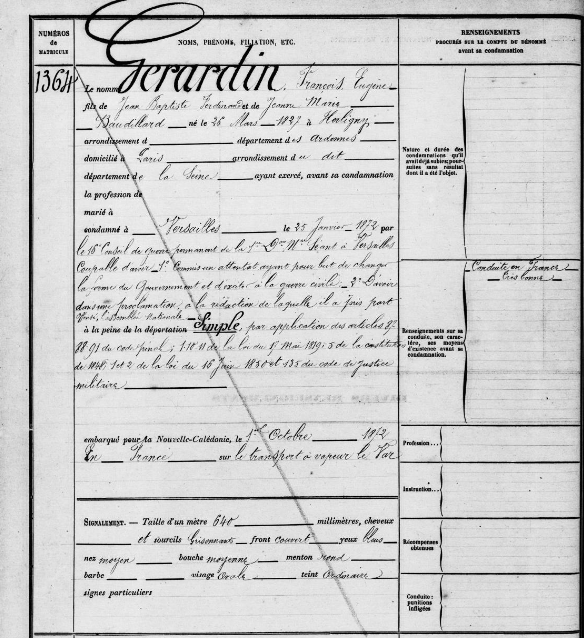 NUMÉROS
de
MATRICULE
NOMS, PRÉNOMS, FILIATION, ETC.
RENSEIGNEMENTS
PROCURÉS SUR LE COMPTE DU DÉNOMMÉ
avant sa condamnation
1364
Le nommé Gérardin, François, Eugène
fils de Jean Baptiste Ferdinand et de Jeanne Marie
Baudillard né le 26 Mars 1827 à
arrondissement d département des Ardennes
domicilié à Paris arrondissement du dit
département de la Seine ayant exercé, avant sa condamnation
la profession de
marié à
condamné à Versailles le 25 Janvier 1872 par
le 16e Conseil de guerre permanent de la 1re Don Mre Séant à Versailles
Coupable d'avoir 1° Commis un attentat ayant pour but de changer
la forme du Gouvernement et d'exciter à la guerre civile 2° d'avoir
dans une proclamation, à la rédaction de laquelle il a pris part
l'Assemblée Nationale
à la peine de la déportation Simple, par application des articles 87
88. 91 du code pénal; 1. 10. 11 de la loi du 17 Mai 1819; 5 de la constitution
de 1848; 1 et 2 de la loi du 16 Juin 1850 et 135 du code de justice
militaire
embarqué pour la Nouvelle-Calédonie, le 1er Octobre 1872
En France sur le transport à vapeur le Var
SIGNALEMENT. — Taille d'un mètre 640 millimètres, cheveux
et sourcils Grisonnants front couvert yeux bleus
nez moyen bouche moyenne menton rond
barbe visage Ovale teint Ordinaire
signes particuliers
Nature et durée des
condamnations qu'il
avait déjà subies; pour-
suites sans résultat
dont il a été l'objet.
Conduite en France
très bonne
Renseignements sur sa
conduite, son carac-
tère, ses moyens
d'existence avant sa
condamnation.
Profession...
Instruction...
Récompenses
obtenues
Conduite:
punitions
infligées